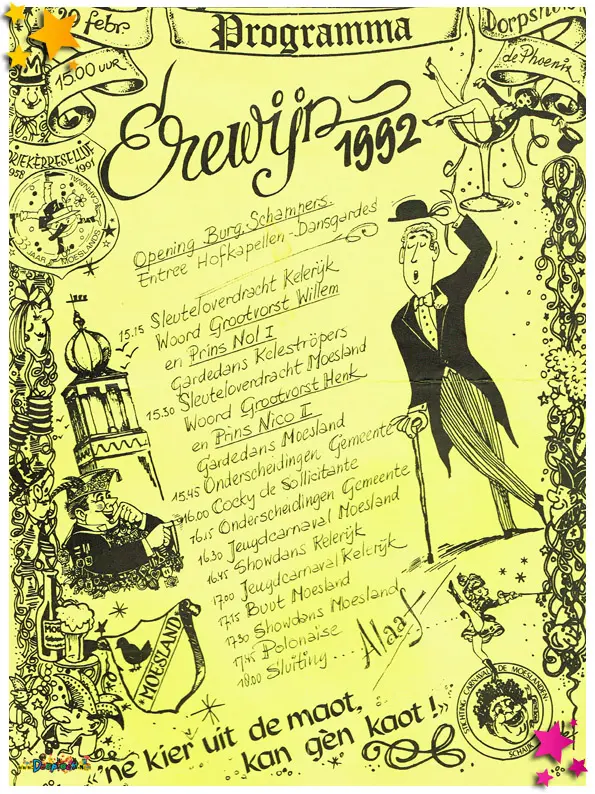 febr.
Programma
15.00 UUR
de Phoenix
Erewijn
1992
1991
JAAR MOESLANDS
Opening Burg. Schampers.
Entree Hofkapellen-Dansgardes
15.15 Sleuteloverdracht Kelerijk
Woord Grootvorst Willem
en Prins Nol I
Gardedans Keleströpers
15.30 Sleuteloverdracht Moesland
Woord Grootvorst Henk
en Prins Nico II
Gardedans Moesland
15.45 Onderscheidingen Gemeente
16.00 Cocky de Sollicitante
16.15 Onderscheidingen Gemeente
16.30 Jeugdcarnaval Moesland
16.45 Showdans Kelerijk
17.00 Jeugdcarnaval Kelerijk
17.15 Buut Moesland
17.30 Showdans Moesland
17.45 Polonaise
18.00 Sluiting....
Alaaf....
MOESLAND
STICHTING CARNAVAL DE MOESLANDEN
SCHAIJK
"'ne kier uit de maot,
kan gén kaot!"